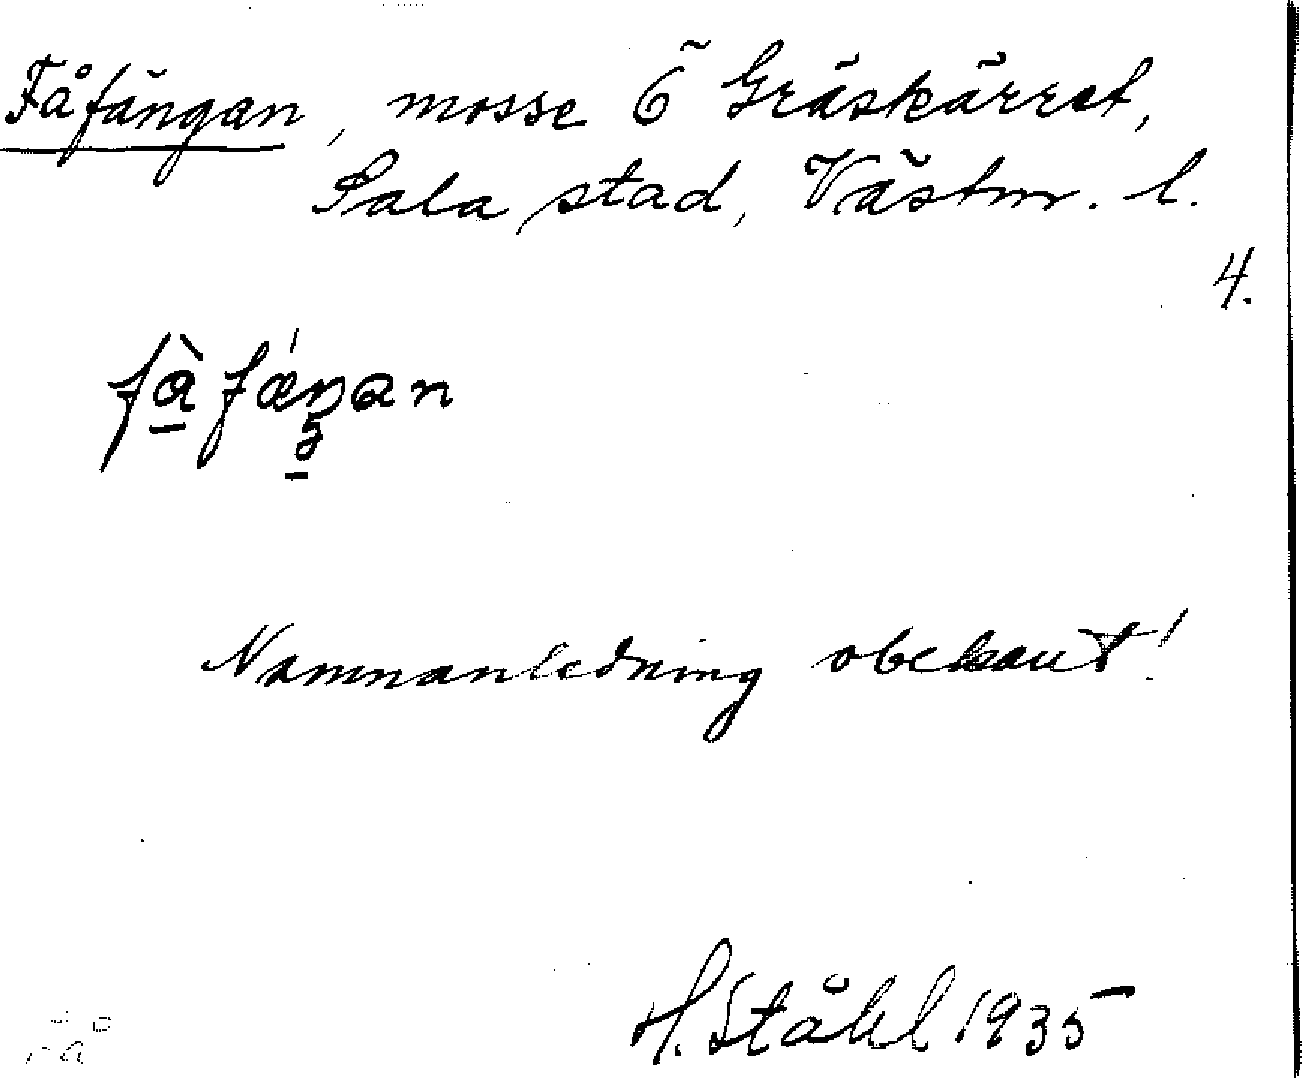 Fåfängan, mosse Ö Gräskärret,
Sala stad, Västm. l.
4.
Namnanledning obekant!
H. Ståhl 1935